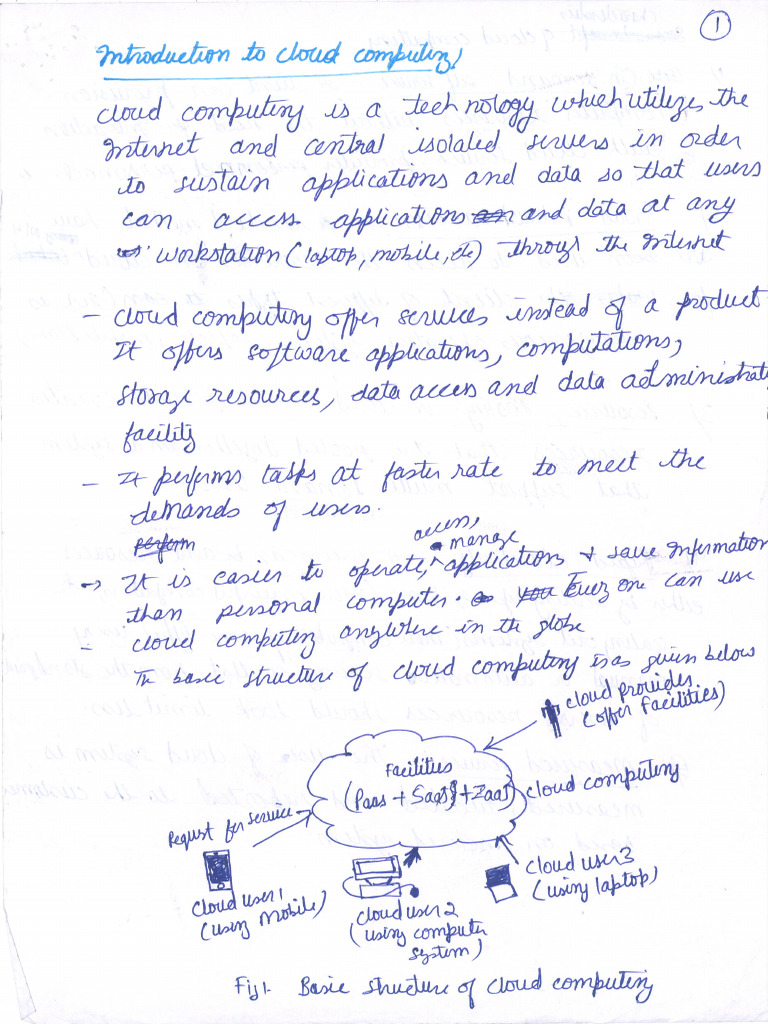 1
Introduction to cloud computing
cloud computing is a technology which utilizes the
Internet and central isolated servers in order
to sustain applications and data so that users
can access applications and data at any
workstation (laptop, mobile, etc) through the Internet
- cloud computing offer services instead of a product
It offers software applications, computations,
storage resources, data access and data administrat
facility
- It performs tasks at faster rate to meet the
demands of users.
perform
access,
manage
→ It is easier to operate, ^ applications + save information
than personal computer. you Every one can use
- cloud computing anywhere in the globe
The basic structure of cloud computing is as given below
cloud provides
(offer facilities)
Facilities
(Paas + SaaS + IaaS)
cloud computing
Request for service
cloud user 1
(using Mobile)
cloud user 2
(using computer
system)
cloud user 3
(using laptop)
Fig 1. Basic structure of cloud computing